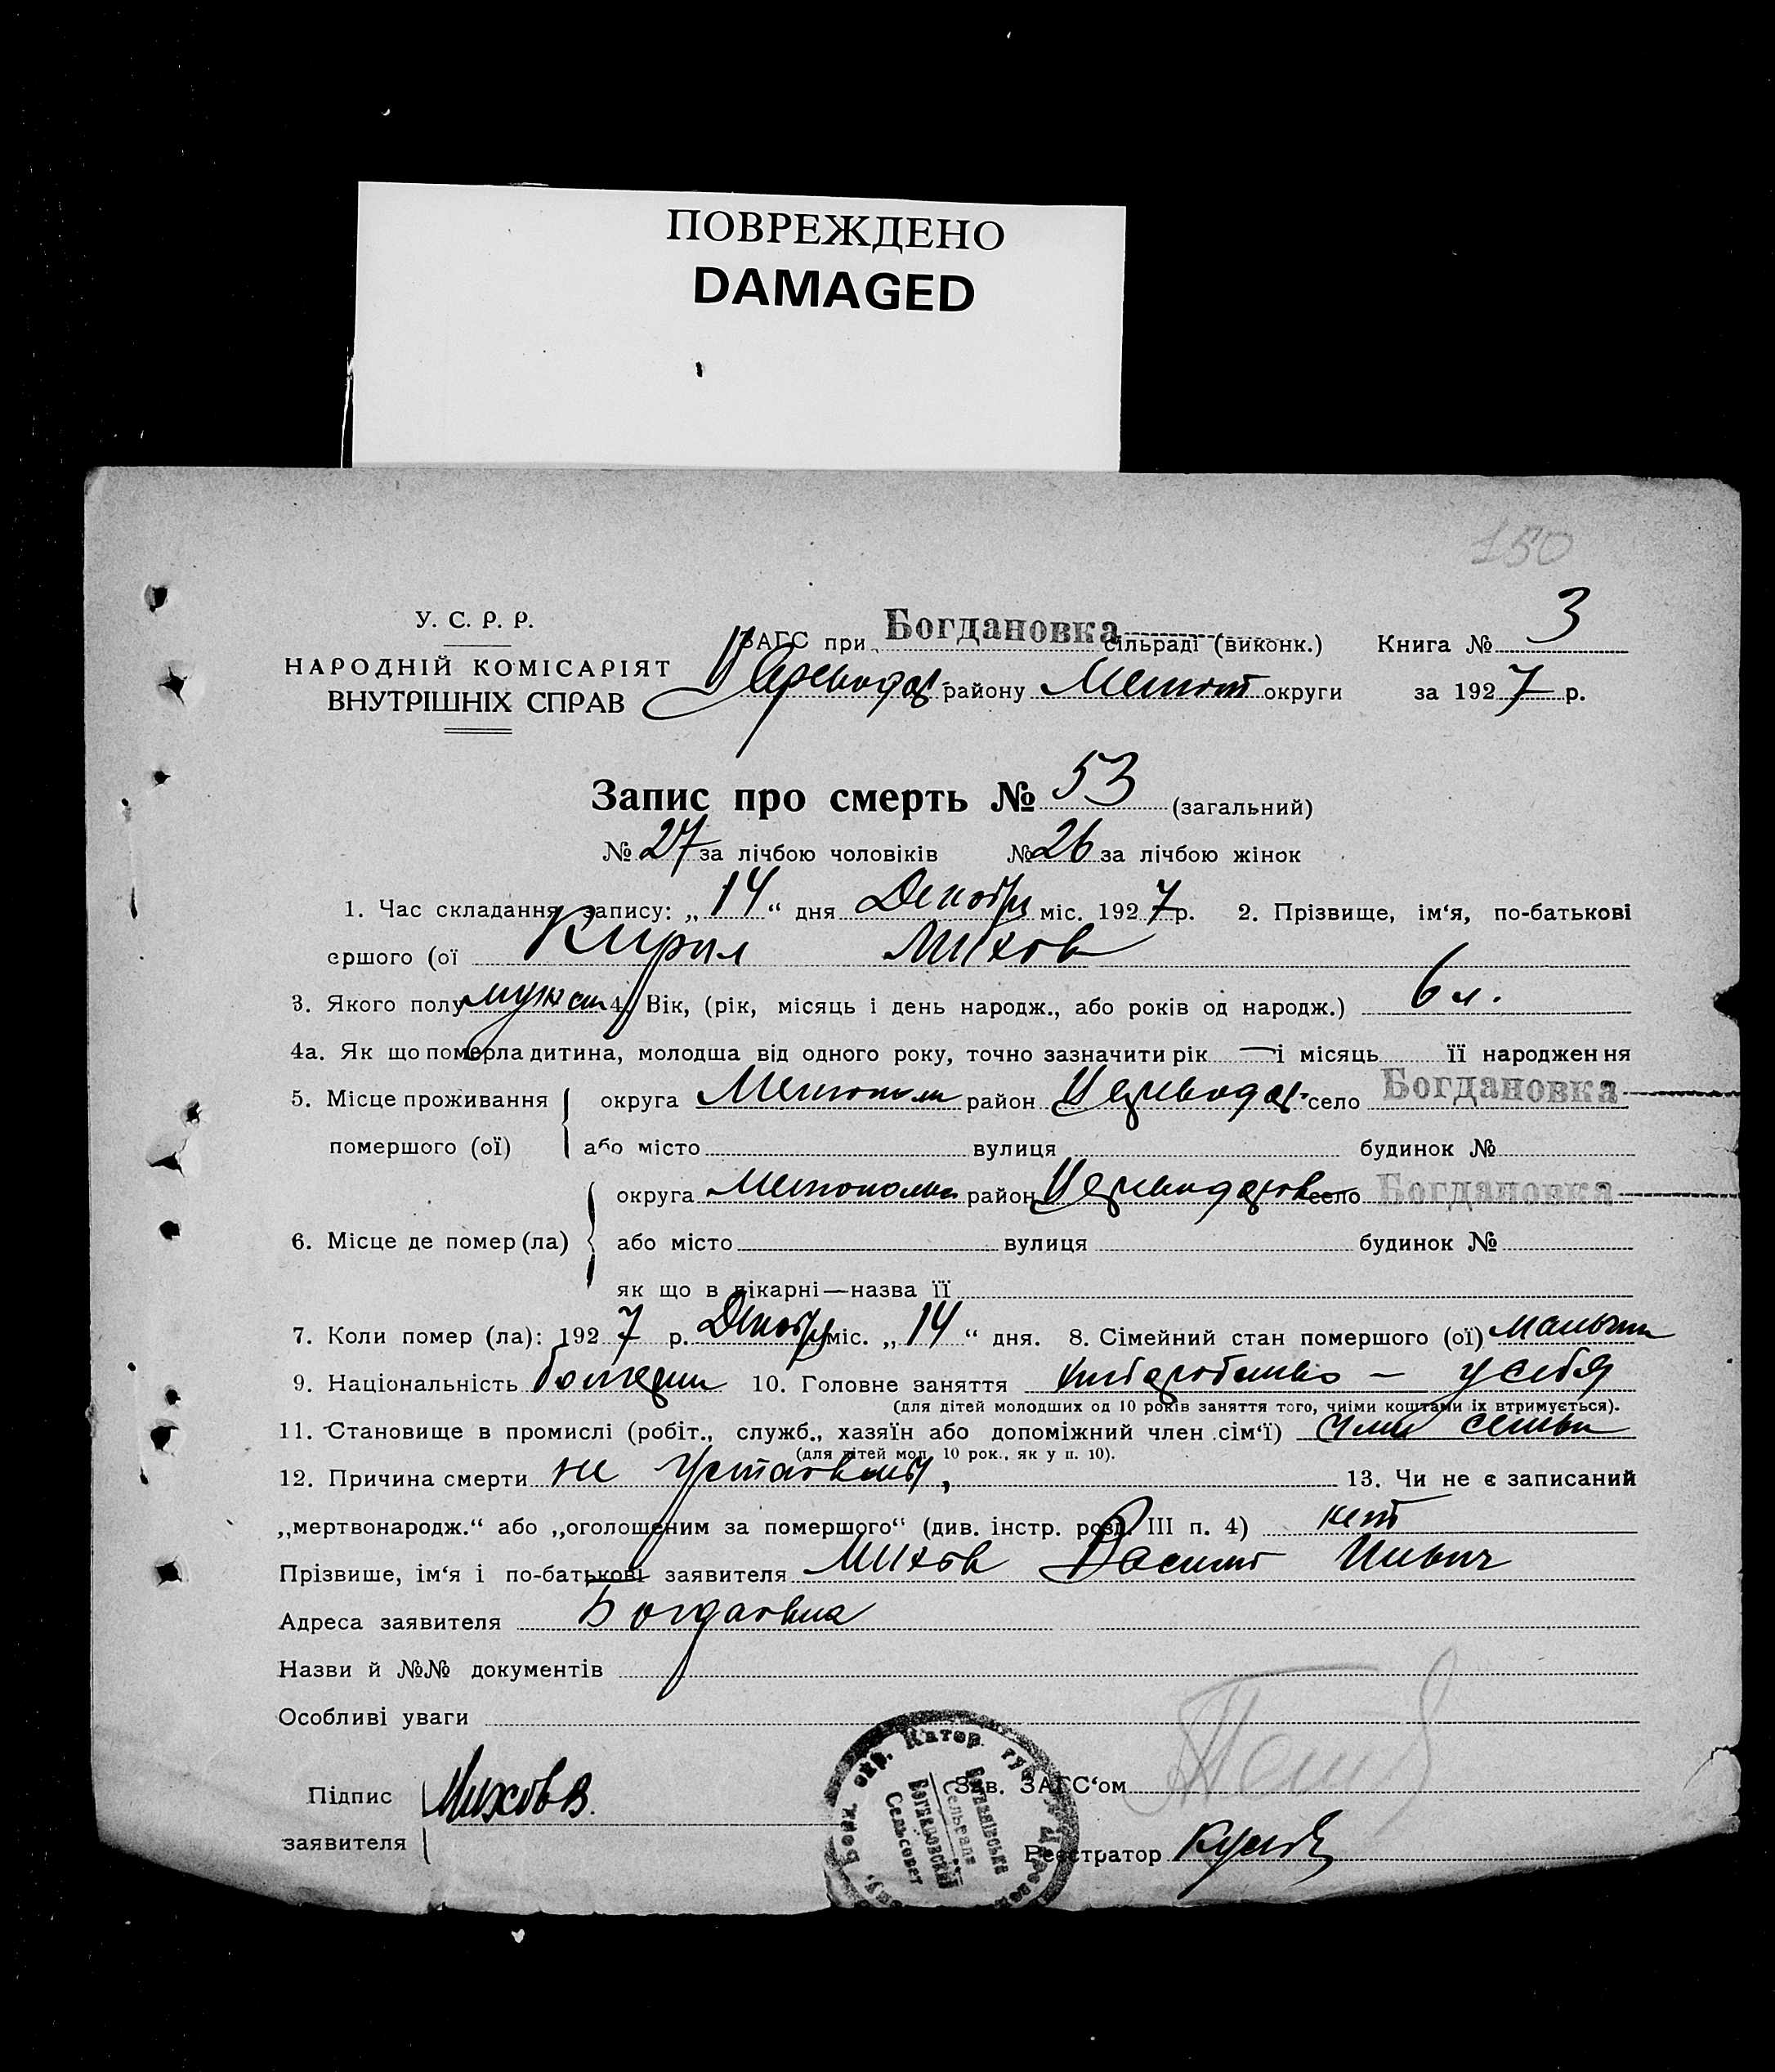 ПОВРЕЖДЕНО
DAMAGED
150
У. С. Р. Р.
НАРОДНІЙ КОМІСАРІЯТ
ВНУТРІШНІХ СПРАВ
ЗАГС при Богдановка сільраді (виконк.) Книга № 3
району Мелитоп округи за 1927 р.
Запис про смерть № 53 (загальний)
№ 27 за лічбою чоловіків № 26 за лічбою жінок
1. Час складання запису: „14“ дня Декабря міс. 1927 р. 2. Прізвище, ім‘я, по-батькові
ершого (ої Кирил Михов
3. Якого полу мужск 4. Вік, (рік, місяць і день народж., або років од народж.) 6 л.
4а. Як що померла дитина, молодша від одного року, точно зазначити рік — і місяць її народження
5. Місце проживання округа Мелитополь район село Богдановка
помершого (ої) або місто вулиця будинок №
округа Мелитополь район село Богдановка
6. Місце де помер (ла) або місто вулиця будинок №
як що в лікарні—назва її
7. Коли помер (ла): 1927 р. Декабря міс. „14“ дня. 8. Сімейний стан помершого (ої) мальчик
9. Національність болгарин 10. Головне заняття хлебаробство — у себя
(для дітей молодших од 10 років заняття того, чиїми коштами їх втримується).
11. Становище в промислі (робіт., служб., хазяїн або допоміжний член сім‘ї) член семьи
(для дітей мол. 10 рок., як у п. 10).
12. Причина смерти не 13. Чи не є записаний
„мертвонародж.“ або „оголошеним за помершого“ (див. інстр. розд. III п. 4) нет
Прізвише, ім‘я і по-батькові заявителя Михов Василий Ильич
Адреса заявителя Богдановка
Назви й №№ документів
Особливі уваги
Підпис Михов В. Зав. ЗАГС‘ом
заявителя Реєстратор